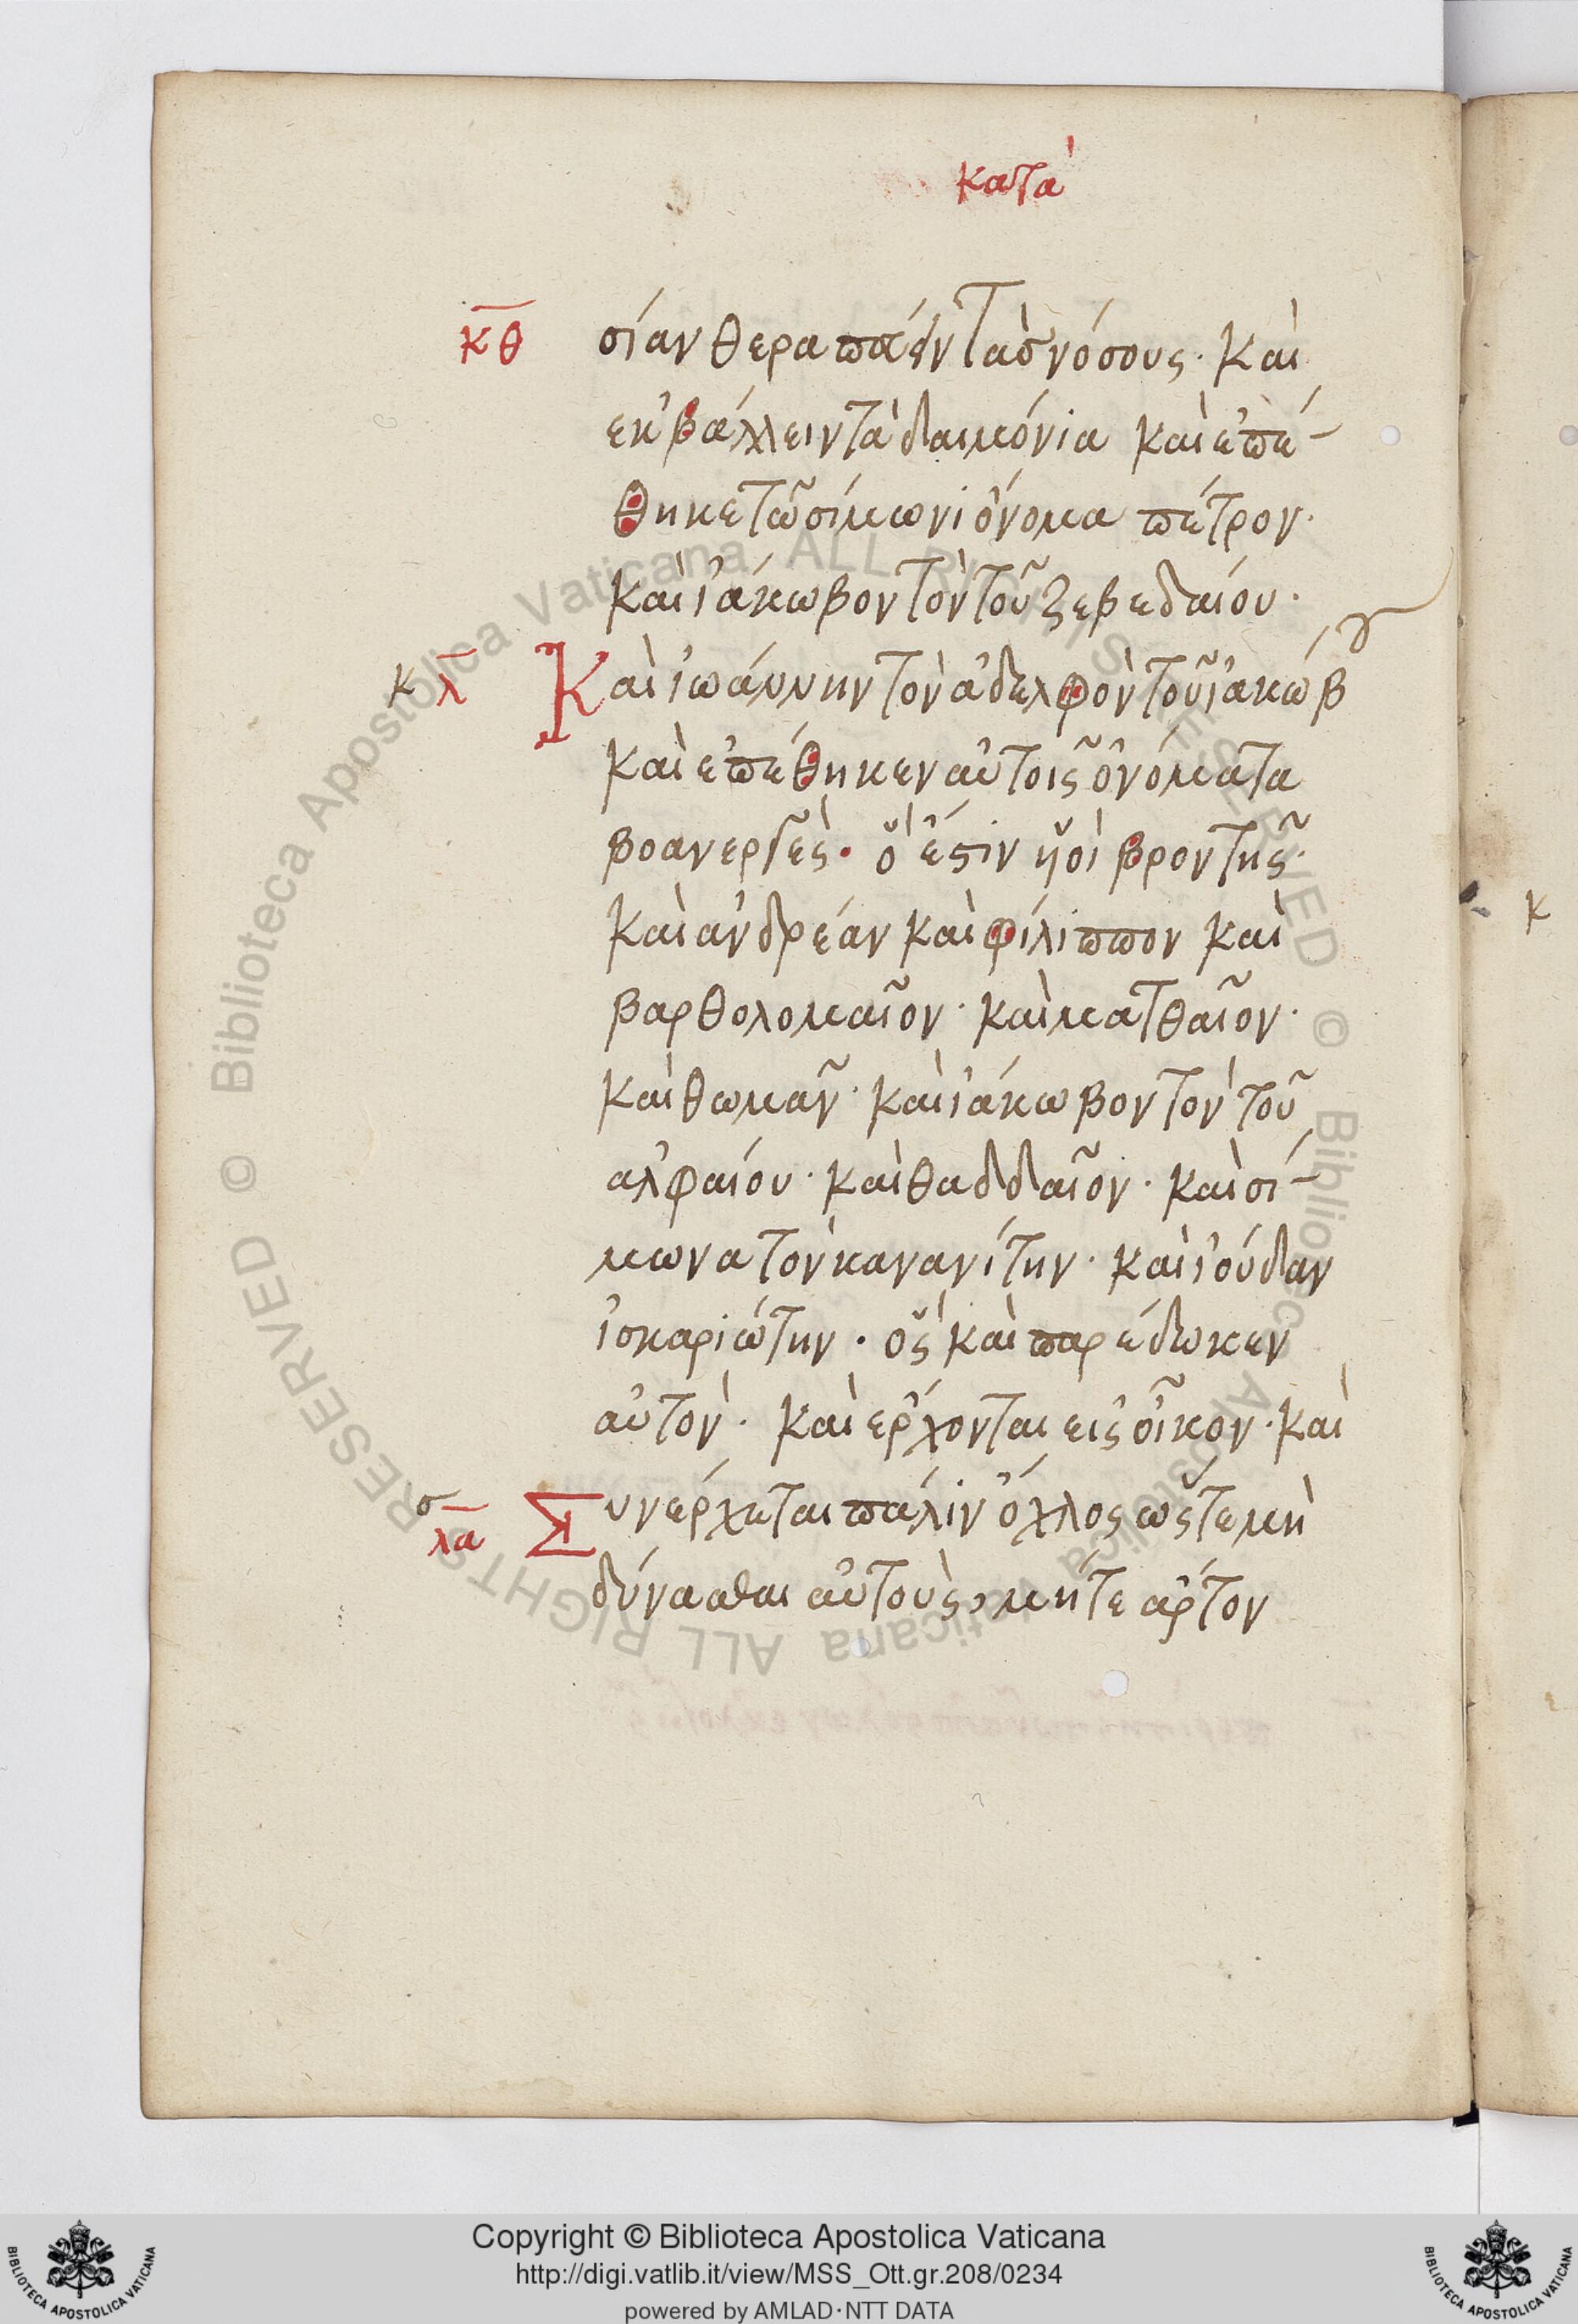 κατὰ
κθ σίαν θεραπεύειν τὰς νόσους· καὶ
ἐκβάλλειν τὰ δαιμόνια καὶ ἐπέ-
θηκε τῶ σίμωνι ὄνομα πέτρον·
καὶ ἰάκωβον τὸν τοῦ ζεβεδαίου·
κ λ Καὶ ἰωάννην τὸν ἀδελφὸν τοῦ ἰακώβου
καὶ ἐπέθηκεν αὐτοῖς ὀνόματα
βοανεργὲς· ὅ ἐστιν ὑιοὶ βροντῆς·
καὶ ἀνδρέαν καὶ φίλιππον καὶ
βαρθολομαῖον· καὶ ματθαῖον·
καὶ θωμᾶν· καὶ ἰάκωβον τὸν τοῦ
ἀλφαίου· καὶ θαδδαῖον· καὶ σί-
μωνα τὸν κανανίτην· καὶ ἰούδαν
ἰσκαριώτην· ὃς καὶ παρέδωκεν
αὐτὸν· καὶ ἔρχονται εἰς οἶκον· καὶ
σ λα Συνέρχεται πάλιν ὄχλος ὥστε μὴ
δύνασθαι αὐτοὺς, μήτε ἄρτον
κ
Copyright © Biblioteca Apostolica Vaticana
http://digi.vatlib.it/view/MSS_Ott.gr.208/0234
powered by AMLAD·NTT DATA
BIBLIOTECA APOSTOLICA VATICANA
BIBLIOTECA APOSTOLICA VATICANA
© Biblioteca Apostolica Vaticana ALL RIGHTS RESERVED © Biblioteca Apostolica Vaticana ALL RIGHTS RESERVED